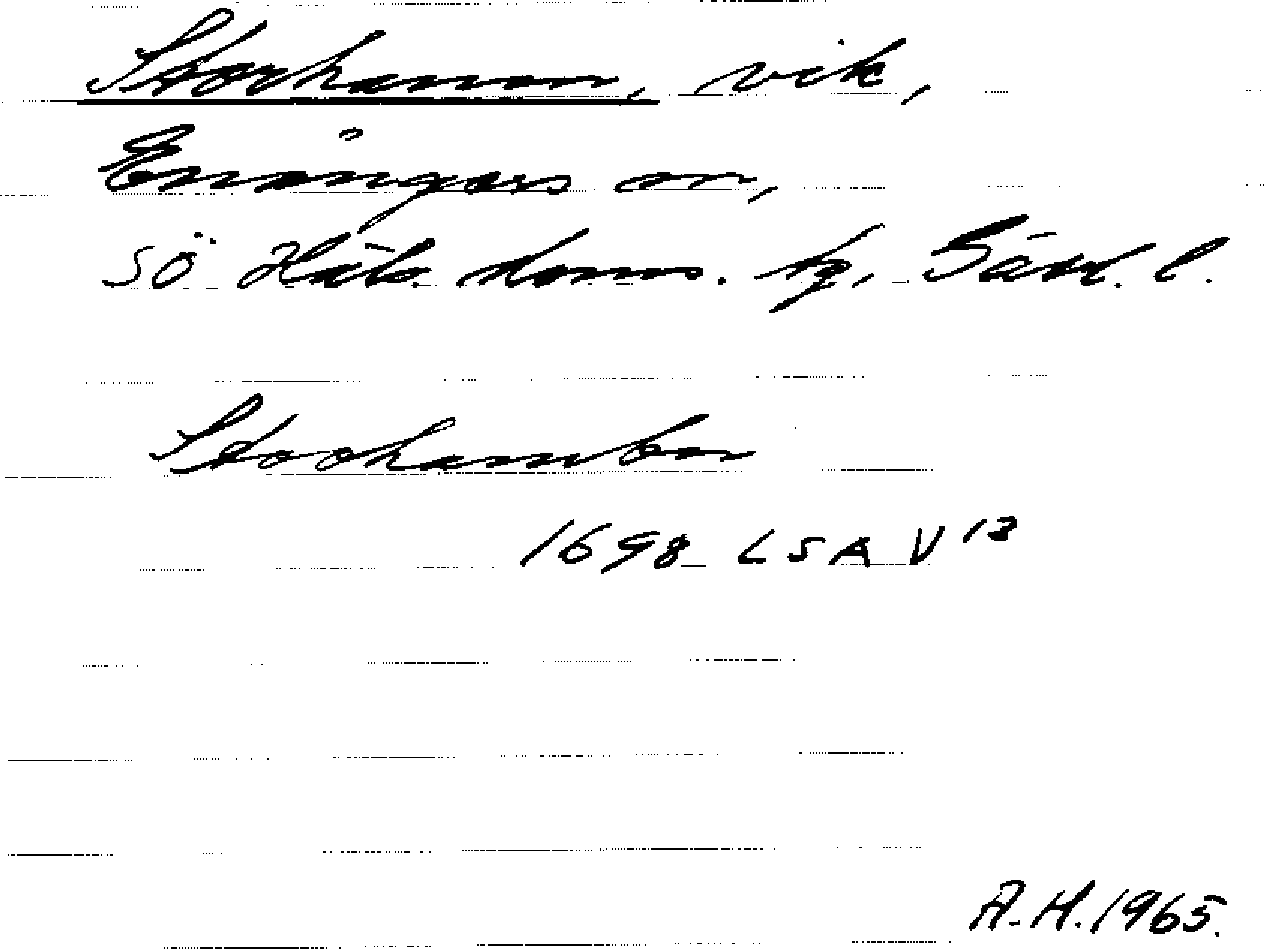 Storhamn, vik,
Enångers sn,
SÖ Häls. doms. tg, Gävl. l.
Stoorhambn
1698 LSA V 13
A.H. 1965.